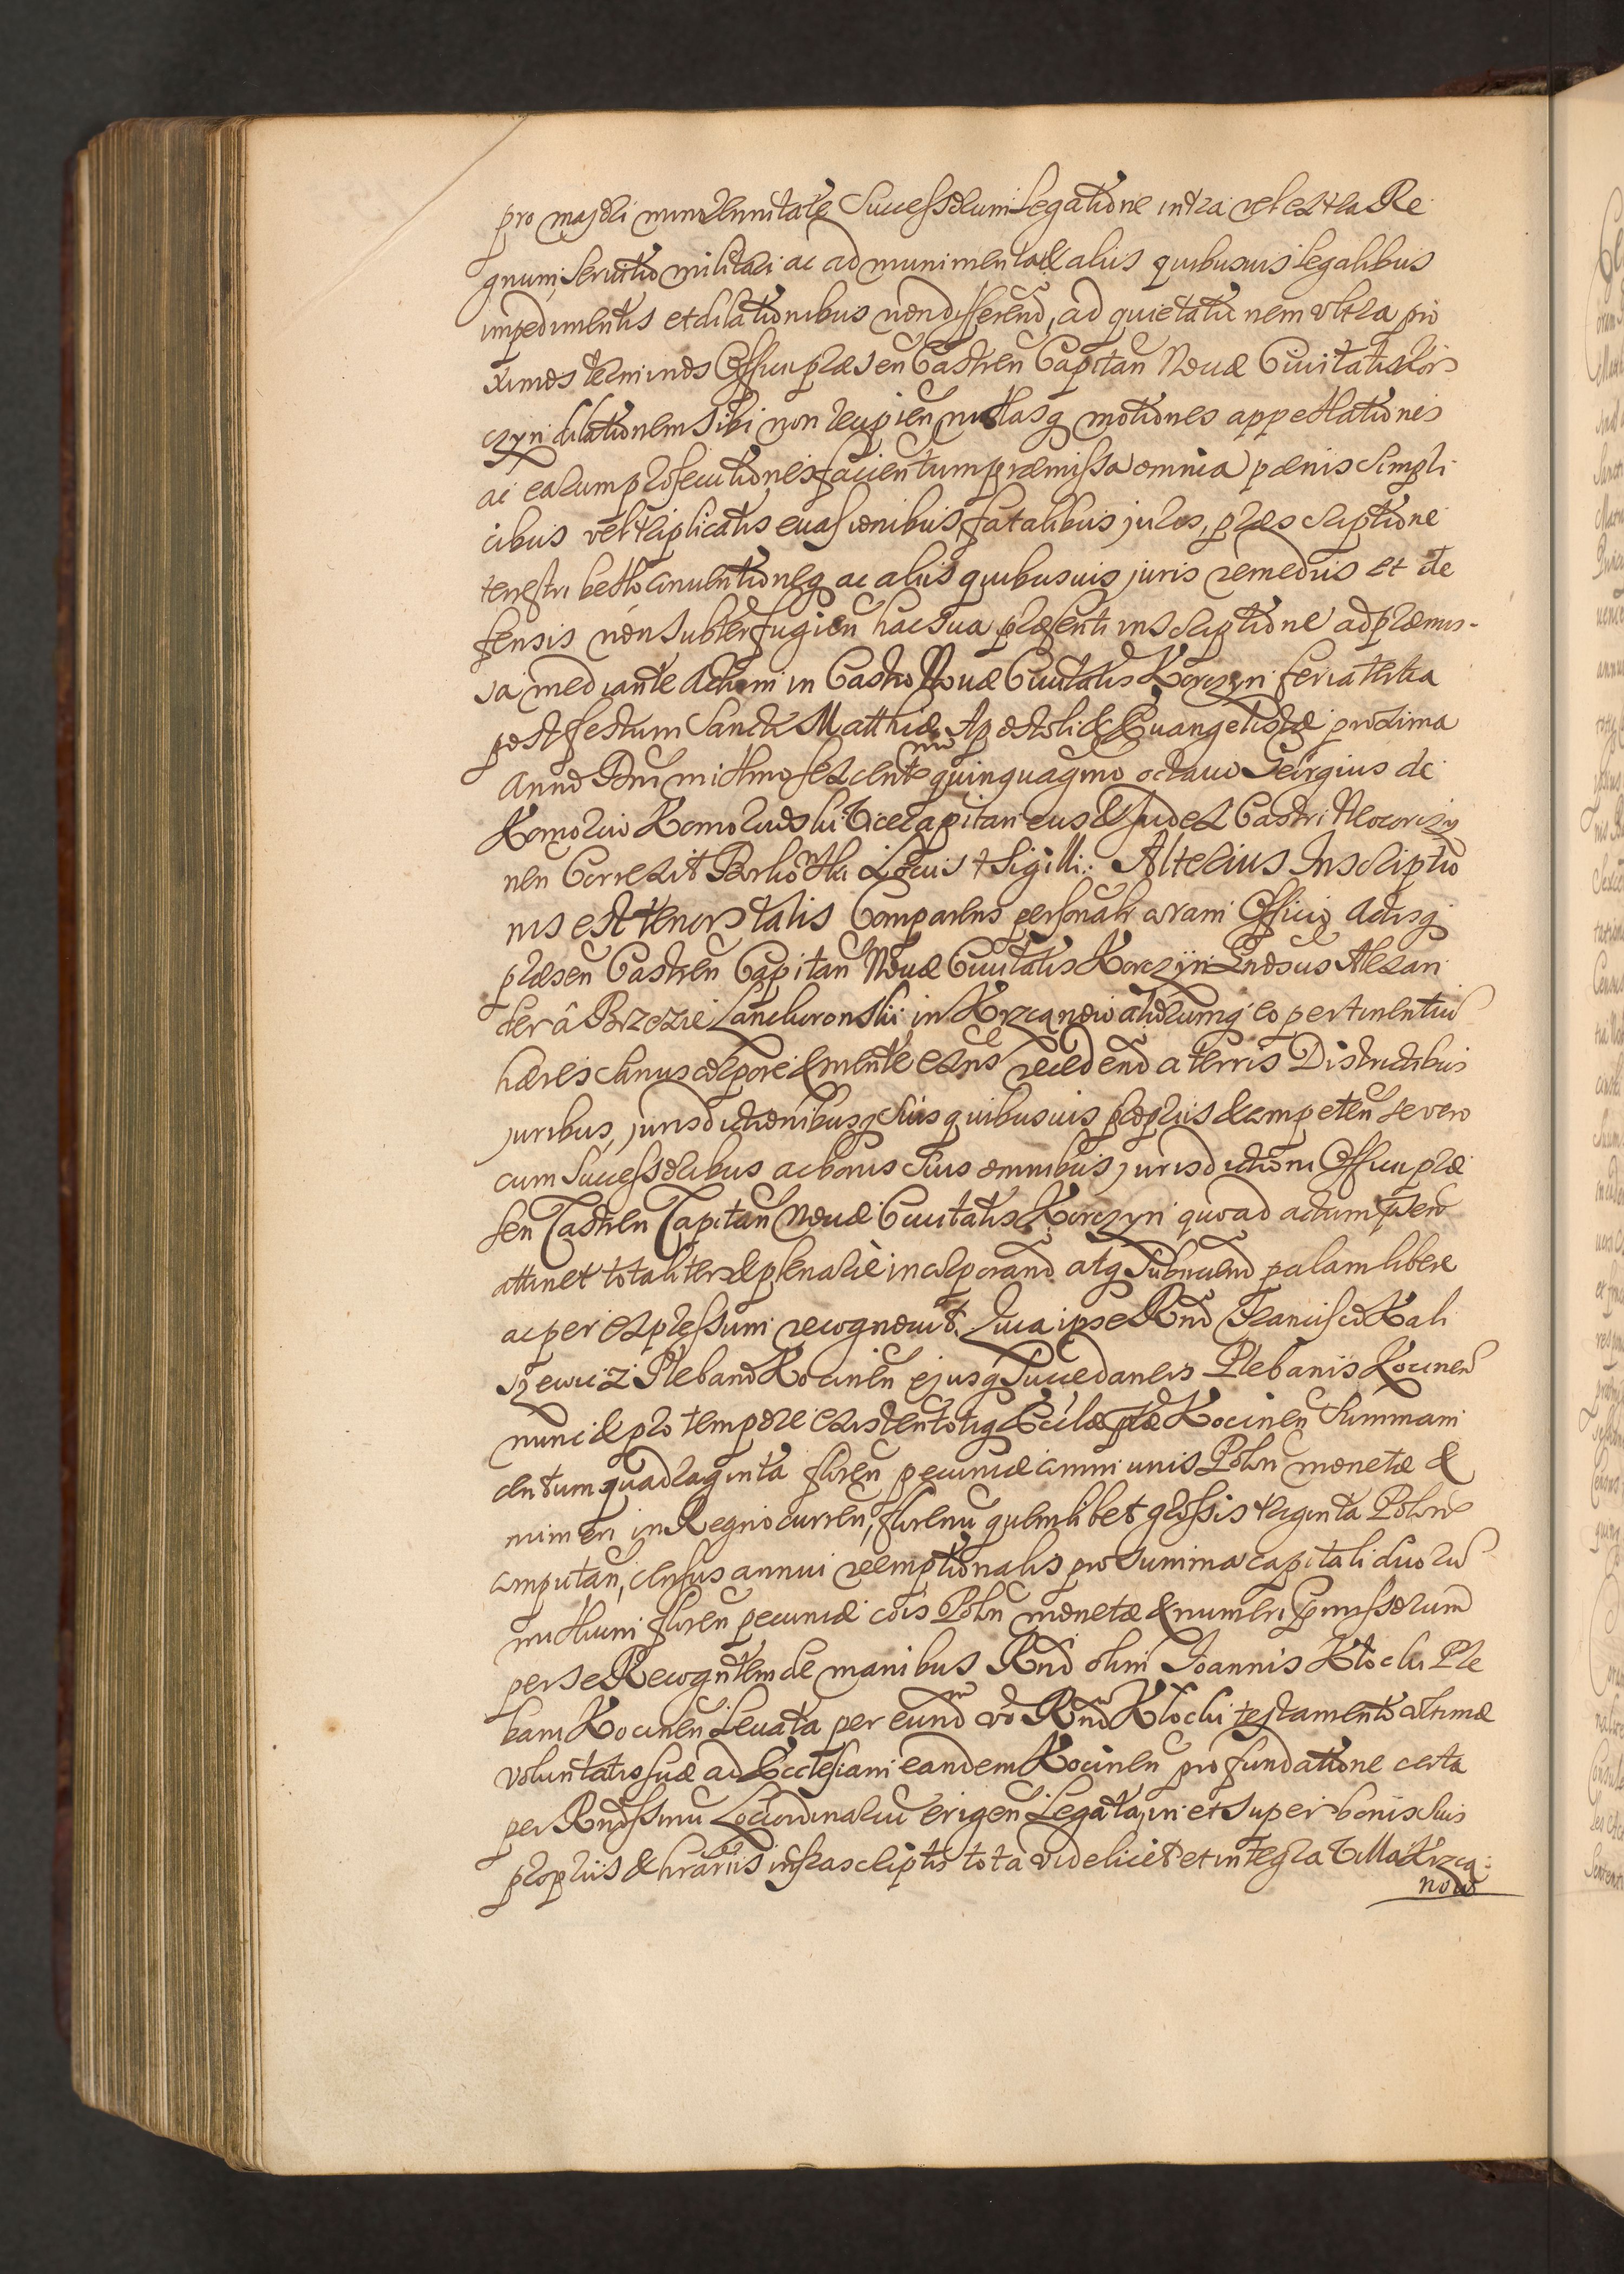 pro majori minorennitate Successorum Legatione intra vel extra Re
gnum, servitio militari ac ad munimenta & aliis quibusvis legalibus
impedimentis et dilationibus non differend, ad quietationem ultra pro
ximos terminos Officii præsen Castren Capitan Novæ Civitatis Kor
czyn dilationem sibi non recipien nullasq motiones appellationes
ac earum prosecutiones facien tum præmissa omnia pænis simpli
cibus vel triplicatis evasionibus, fatalibus juros, præscriptione
terrestri bello conventioneq ac aliis quibusvis juris remediis et de
fensis non subterfugien hac sua præsenti inscriptione ad præmis-
sa mediante Actum in Castro Novæ Civitatis Korczyn feria tertia
post festum Sancti Matthiæ Apostoli & Euangelistæ proxima
Anno Dni millmo sexcentmo quinquagmo octavo Georgius de
Komorow Komorowski Vicecapitaneus & Judex Castri Neocorczy
nen Correxit Locus + Sigilli: Alterius Inscriptio
nis est tenor talis Comparens personalr coram Officio Actisq
præsen Castren Capitan Novæ Civitatis Korczyn Gnosus Alexan
der â Brzezie Lanckoronski in Krzcanow aliorumq eo pertinentiu
hæres sanus corpore & mente exns recedend a terris Districtibus
juribus, jurisdictionibusq suis quibusvis propriis & competen se vero
cum Successoribus ac bonis suis omnibus jurisdictioni Officii præ
sen Castren Capitan Novæ Civitatis Korczyn quoad actum psens
attinet totaliter & plenarie incorporand atq subiiciend palam libere
ac per expressum recognovit. Quia ipse Rnd Francisco Kali
szewicz Plebano Kocinen ejusq Succedaneis Plebanis Kocinen
nunc & pro tempore existen totiq Ecclæ ptæ Kocinen Summam
centum quadraginta floren pecuniæ communis Poln monetæ &
numeri in Regno curren, florenu quemlibet grossis triginta Polon
computan, census annui reemptionalis pro summa capitali duoru
millium floren pecuniæ cois Poln monetæ & numeri pmissorum
per se Recognntem de manibus Rnd olim Joannis Klocki Ple
bani Kocinen Levata per eund vo Rnd Klocki testamento ultimæ
voluntatis suæ ad Ecclesiam eandem Kocinen pro fundatione certa
per Rndssmu Loci Ordinarium erigen Legata, in et super bonis suis
propriis & hrariis infrascriptis tota videlicet et integra Villa Krzca:
now